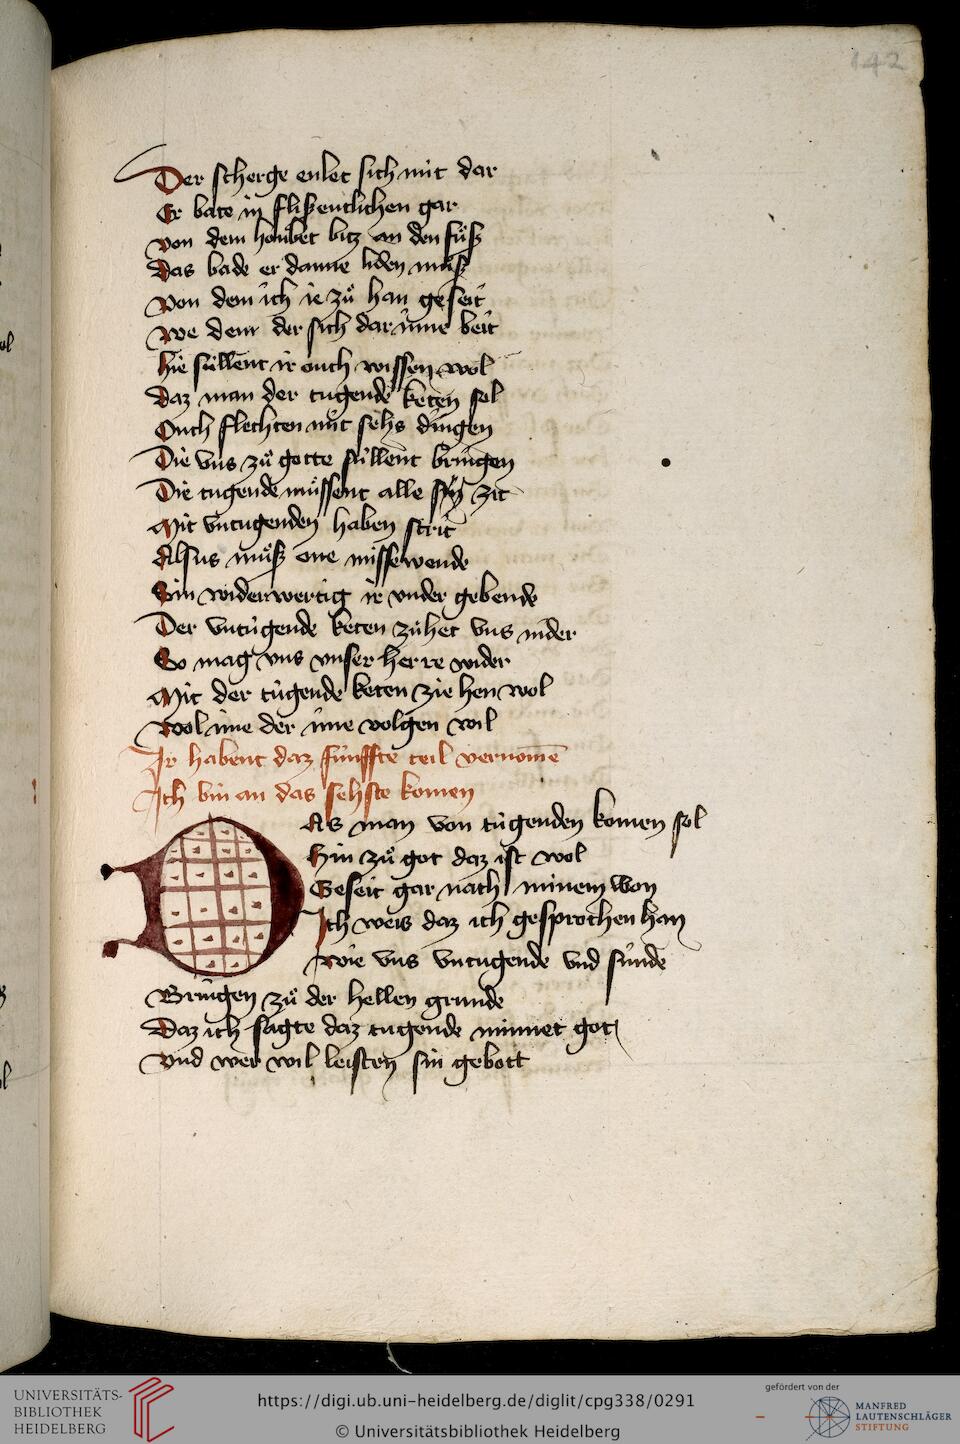 142
Der scherge enlet sich mit dar
Er bate in flißenclichen gar
von dem houbet bitz an den fuͦß
Das bade er danne liden muͦß
Von dem ich ie zuͦ han geseit
We dem der sich dar inne beit
Hie süllent ir ouch wissen wol
Daz man der tugende keten sol
Ouch flechten mit sehs dingen
Die vns zuͦ gotte süllent bringen
Die tugende müssent alle zit
Mit vntugenden haben strit
Alsus muͦß one missewende
Sin widerwertig ir vnder gebende
Der vntugende keten zühet vns nider
So mag vns vnser herre wider
Mit der tugende keten ziehen wol
Wol ime der ime volgen wil
Ir habent daz fünffte teil vernomē
Ich bin an das sehste komen
DAs man von tugenden komen sol
Hin zuͦ got daz ist wol
Geseit gar nach minem won
Ich weis daz ich gesprochen han
Wie vns vntugende vnd sünde
Bringen zuͦ der hellen grunde
Daz ich sagte daz tugende minnet got
Vnd wer wil leisten sin gebott
UNIVERSITÄTS-
BIBLIOTHEK
HEIDELBERG
https://digi.ub.uni-heidelberg.de/diglit/cpg338/0291
© Universitätsbibliothek Heidelberg
gefördert von der
MANFRED
LAUTENSCHLÄGER
STIFTUNG